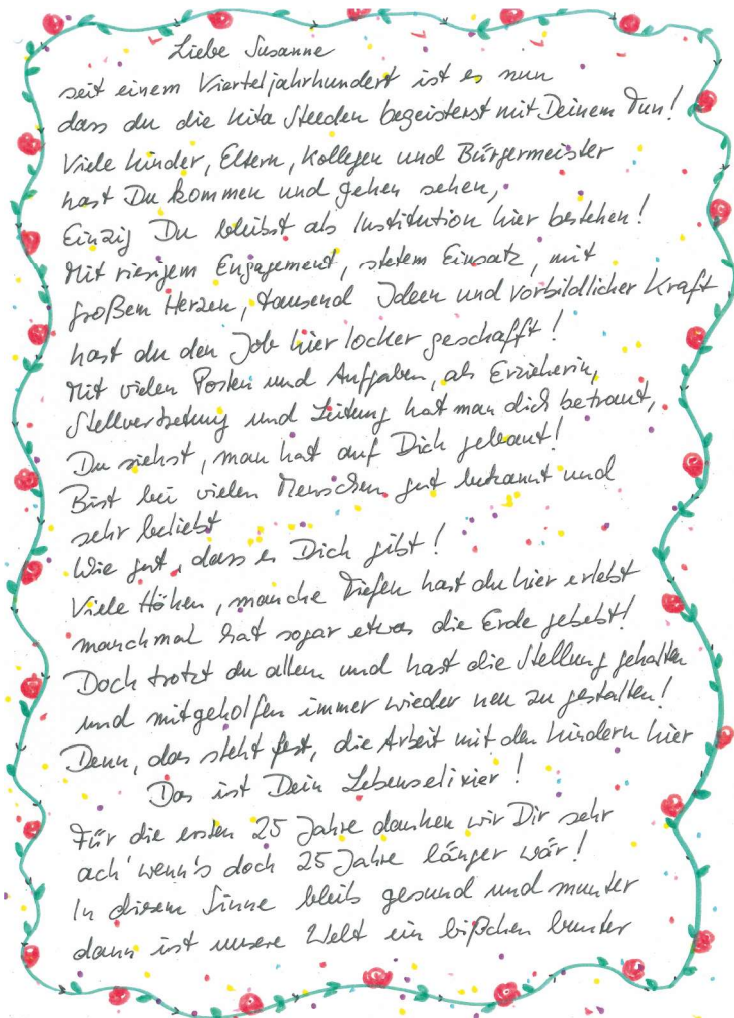 Liebe Susanne
seit einem Vierteljahrhundert ist es nun
dass du die Kita Steeden begeisterst mit Deinem Tun!
Viele Kinder, Eltern, Kollegen und Bürgermeister
hast Du kommen und gehen sehen,
Einzig Du bleibst als Institution hier bestehen!
Mit riesigem Engagement, stetem Einsatz, mit
großem Herzen, tausend Ideen und vorbildlicher Kraft
hast du den Job hier locker geschafft!
Mit vielen Posten und Aufgaben, als Erzieherin,
Stellvertretung und Leitung hat man dich betraut,
Du siehst, man hat auf Dich gebaut!
Bist bei vielen Menschen gut bekannt und
sehr beliebt
Wie gut, dass es Dich gibt!
Viele Höhen, manche Tiefen hast du hier erlebt
manchmal hat sogar etwas die Erde gebebt!
Doch trotzt du allem und hast die Stellung gehalten
und mitgeholfen immer wieder neu zu gestalten!
Denn, das steht fest, die Arbeit mit den Kindern hier
Das ist Dein Lebenselixier!
Für die ersten 25 Jahre danken wir Dir sehr
ach' wenn's doch 25 Jahre länger wär!
In diesem Sinne bleib gesund und munter
dann ist unsere Welt ein bißchen bunter